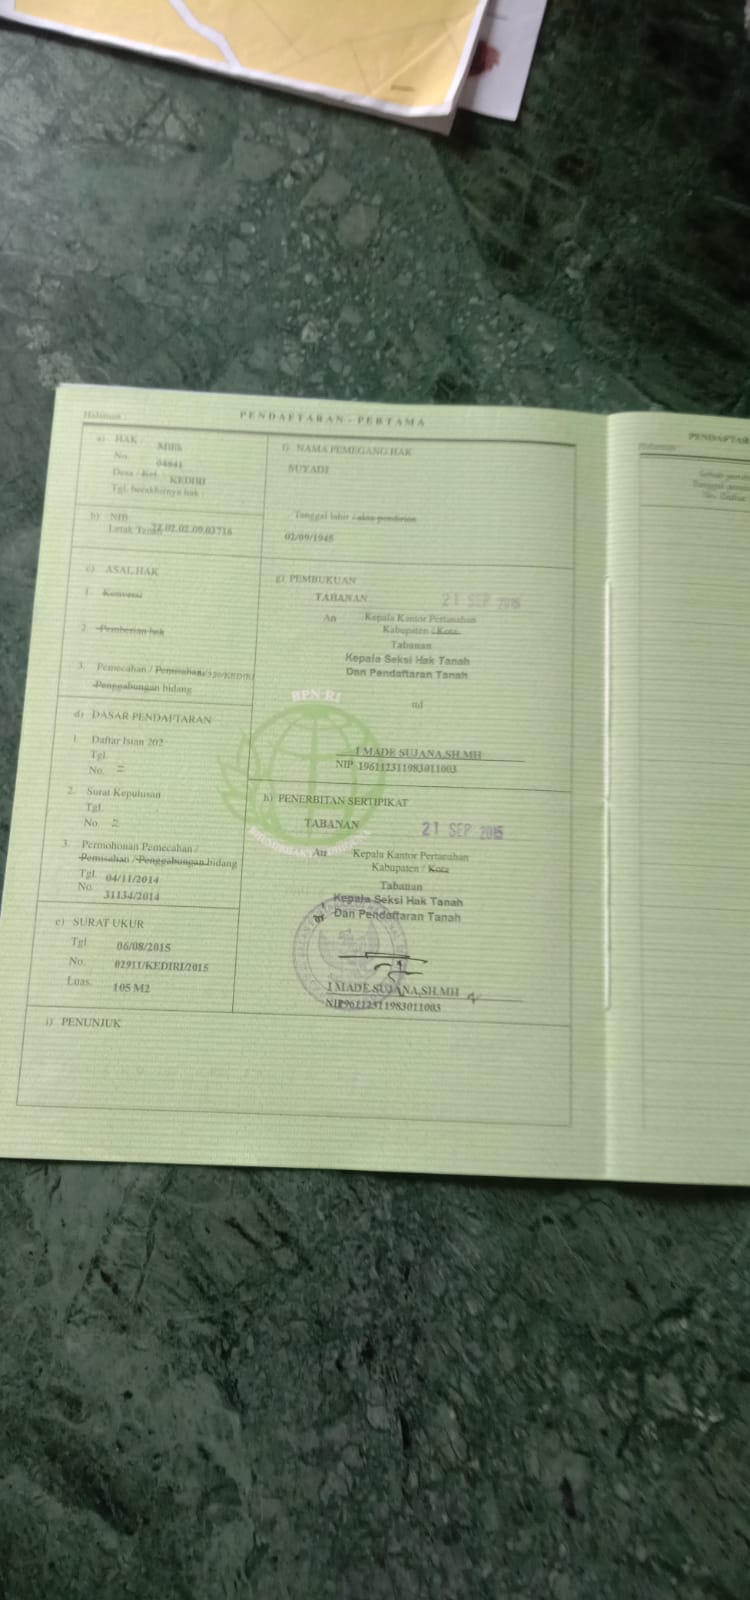 Halaman :
PENDAFTARAN - PERTAMA
a) HAK : Milik
No. 04941
Desa / Kel. KEDIRI
Tgl. berakhirnya hak
b) NIB
Letak Tanah 22.02.02.09.03716
c) ASAL HAK
1. Konversi
2. Pemberian hak
3. Pemecahan / Pemisahan /KEDIRI
Penggabungan bidang
d) DASAR PENDAFTARAN
1. Daftar Isian 202
Tgl.
No. =
2. Surat Keputusan
Tgl.
No. =
3. Permohonan Pemecahan /
Pemisahan / Penggabungan bidang
Tgl. 04/11/2014
No. 31134/2014
e) SURAT UKUR
Tgl 06/08/2015
No. 02911/KEDIRI/2015
Luas. 105 M2
f) NAMA PEMEGANG HAK
SUYADI
Tanggal lahir / akta pendirian
02/09/1945
g) PEMBUKUAN
TABANAN 21 SEP 2015
An Kepala Kantor Pertanahan
Kabupaten / Kota
Tabanan
Kepala Seksi Hak Tanah
Dan Pendaftaran Tanah
BPN RI
ttd
I MADE SUJANA,SH.MH
NIP 196112311983011003
h) PENERBITAN SERTIPIKAT
TABANAN 21 SEP 2015
An Kepala Kantor Pertanahan
Kabupaten / Kota
Tabanan
Kepala Seksi Hak Tanah
Dan Pendaftaran Tanah
I MADE SUJANA,SH.MH
NIP196112311983011003
i) PENUNJUK
PENDAFTAR
Halaman :